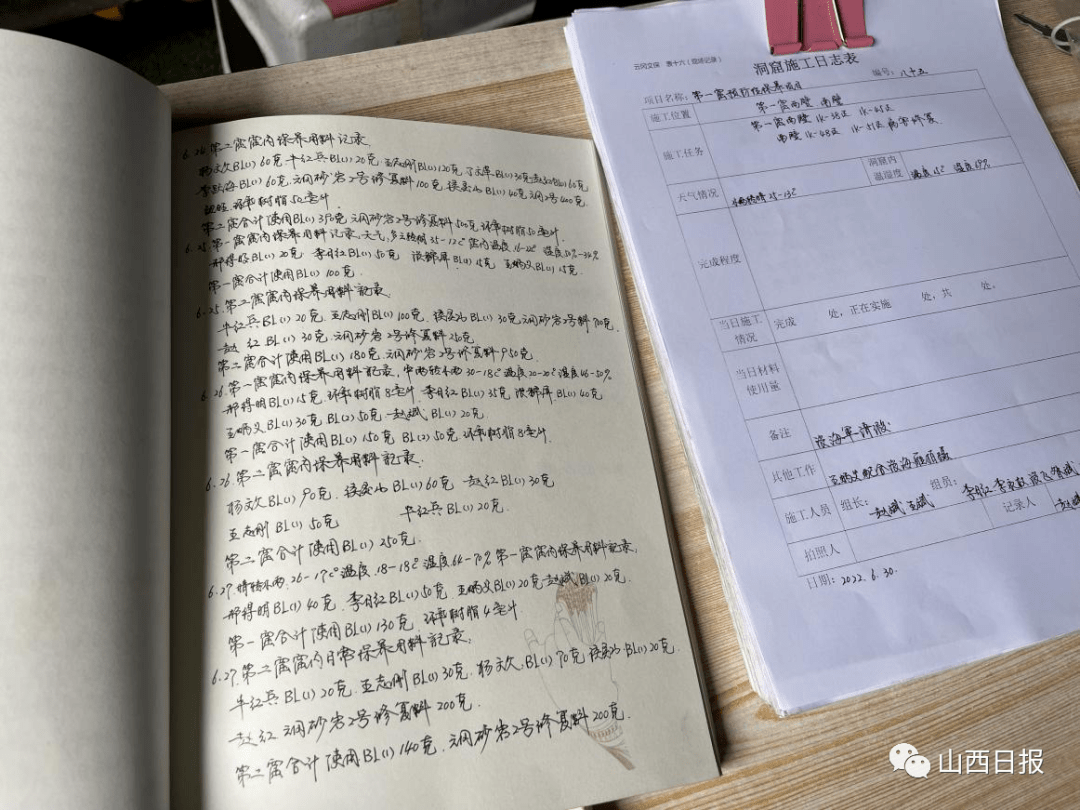 6.24.第二窟窟内保养用料记录
杨文久BL(1)60克.牛红兵BL(1)20克.王志刚BL(1)120克 BL(1)30克 BL(1)60克
BL(1)60克.云冈砂岩2号修复料100克 BL(1)40克 2号400克
环氧树脂50毫升
第二窟合计使用BL(1)350克 云冈砂岩2号修复料500克 环氧树脂50毫升.
6.25.第一窟窟内保养用料记录,天气,多云转晴35-17℃ 窟内温度
邢得明BL(1)20克 李月红BL(1)50克 BL(1)15克 王炳义BL(1)15克.
第一窟合计使用BL(1)100克.
6.25.第二窟窟内保养用料记录.
牛红兵BL(1)20克 王志刚BL(1)100克. BL(1)30克云冈砂岩2号料700克.
赵红BL(1)30克.云冈砂岩2号修复料250克
第二窟合计使用BL(1)180克.云冈砂岩2号修复料950克
6.26.第一窟窟内保养用料记录,中雨转小雨30-18℃温度20-20℃湿度46-50%
邢得明BL(1)15克.环氧树脂8毫升.李月红BL(1)35克 BL(1)40克
王炳义BL(1)30克 BL(2)50克 赵斌BL(1)20克
第一窟合计使用BL(1)150克 BL(2)50克 环氧树脂8毫升.
6.26.第二窟窟内保养用料记录.
杨文久BL(1)90克. BL(1)60克 赵红BL(1)30克
王志刚BL(1)50克 牛红兵BL(1)20克.
第二窟合计使用BL(1)250克.
6.27.晴转小雨,26-17℃温度.18-18℃湿度64-70%第一窟窟内保养用料记录,
邢得明BL(1)40克.李月红BL(1)50克.王炳义BL(1)20克赵斌BL(1)20克.
第一窟合计使用BL(1)130克.环氧树脂4毫升
6.27.第二窟窟内日常保养用料记录,
牛红兵BL(1)20克 王志刚BL(1)30克.杨文久BL(1)70克 BL(1)20克.
赵红云冈砂岩2号修复料200克.
第二窟合计使用BL(1)140克.云冈砂岩2号修复料200克.
云冈文保 表十六(现场记录)
洞窟施工日志表
编号:八十五
项目名称:第一窟预防性保养项目
施工位置 第一窟西壁 南壁
施工任务 第一窟西壁1k-38正 1k-45正
南壁1k-48正 1k-51正病害修复
天气情况 25-13℃ 洞窟内温湿度 温度15℃ 湿度69%
完成程度
当日施工情况 完成 处,正在实施 处,共 处.
当日材料使用量
备注 海军请假
其他工作 王炳义配合
施工人员 组长: 赵斌 王斌 组员: 李月红
拍照人 记录人 赵斌
日期: 2022.6.30.
山西日报